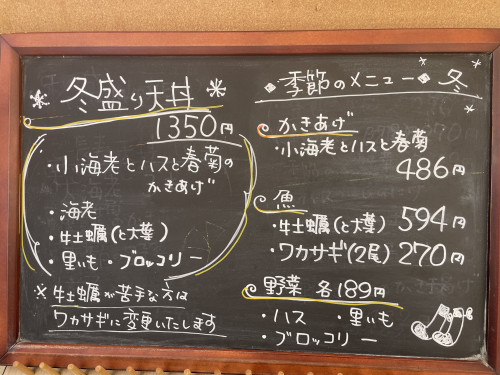 冬盛り天丼
1350円
・小海老とハスと春菊の
かきあげ
・海老
・牡蠣(と大葉)
・里いも・ブロッコリー
※牡蠣が苦手な方は
ワカサギに変更いたします
季節のメニュー 冬
かきあげ
・小海老とハスと春菊
486円
魚
・牡蠣(と大葉) 594円
・ワカサギ(2尾) 270円
野菜 各189円
・ハス ・里いも
・ブロッコリー